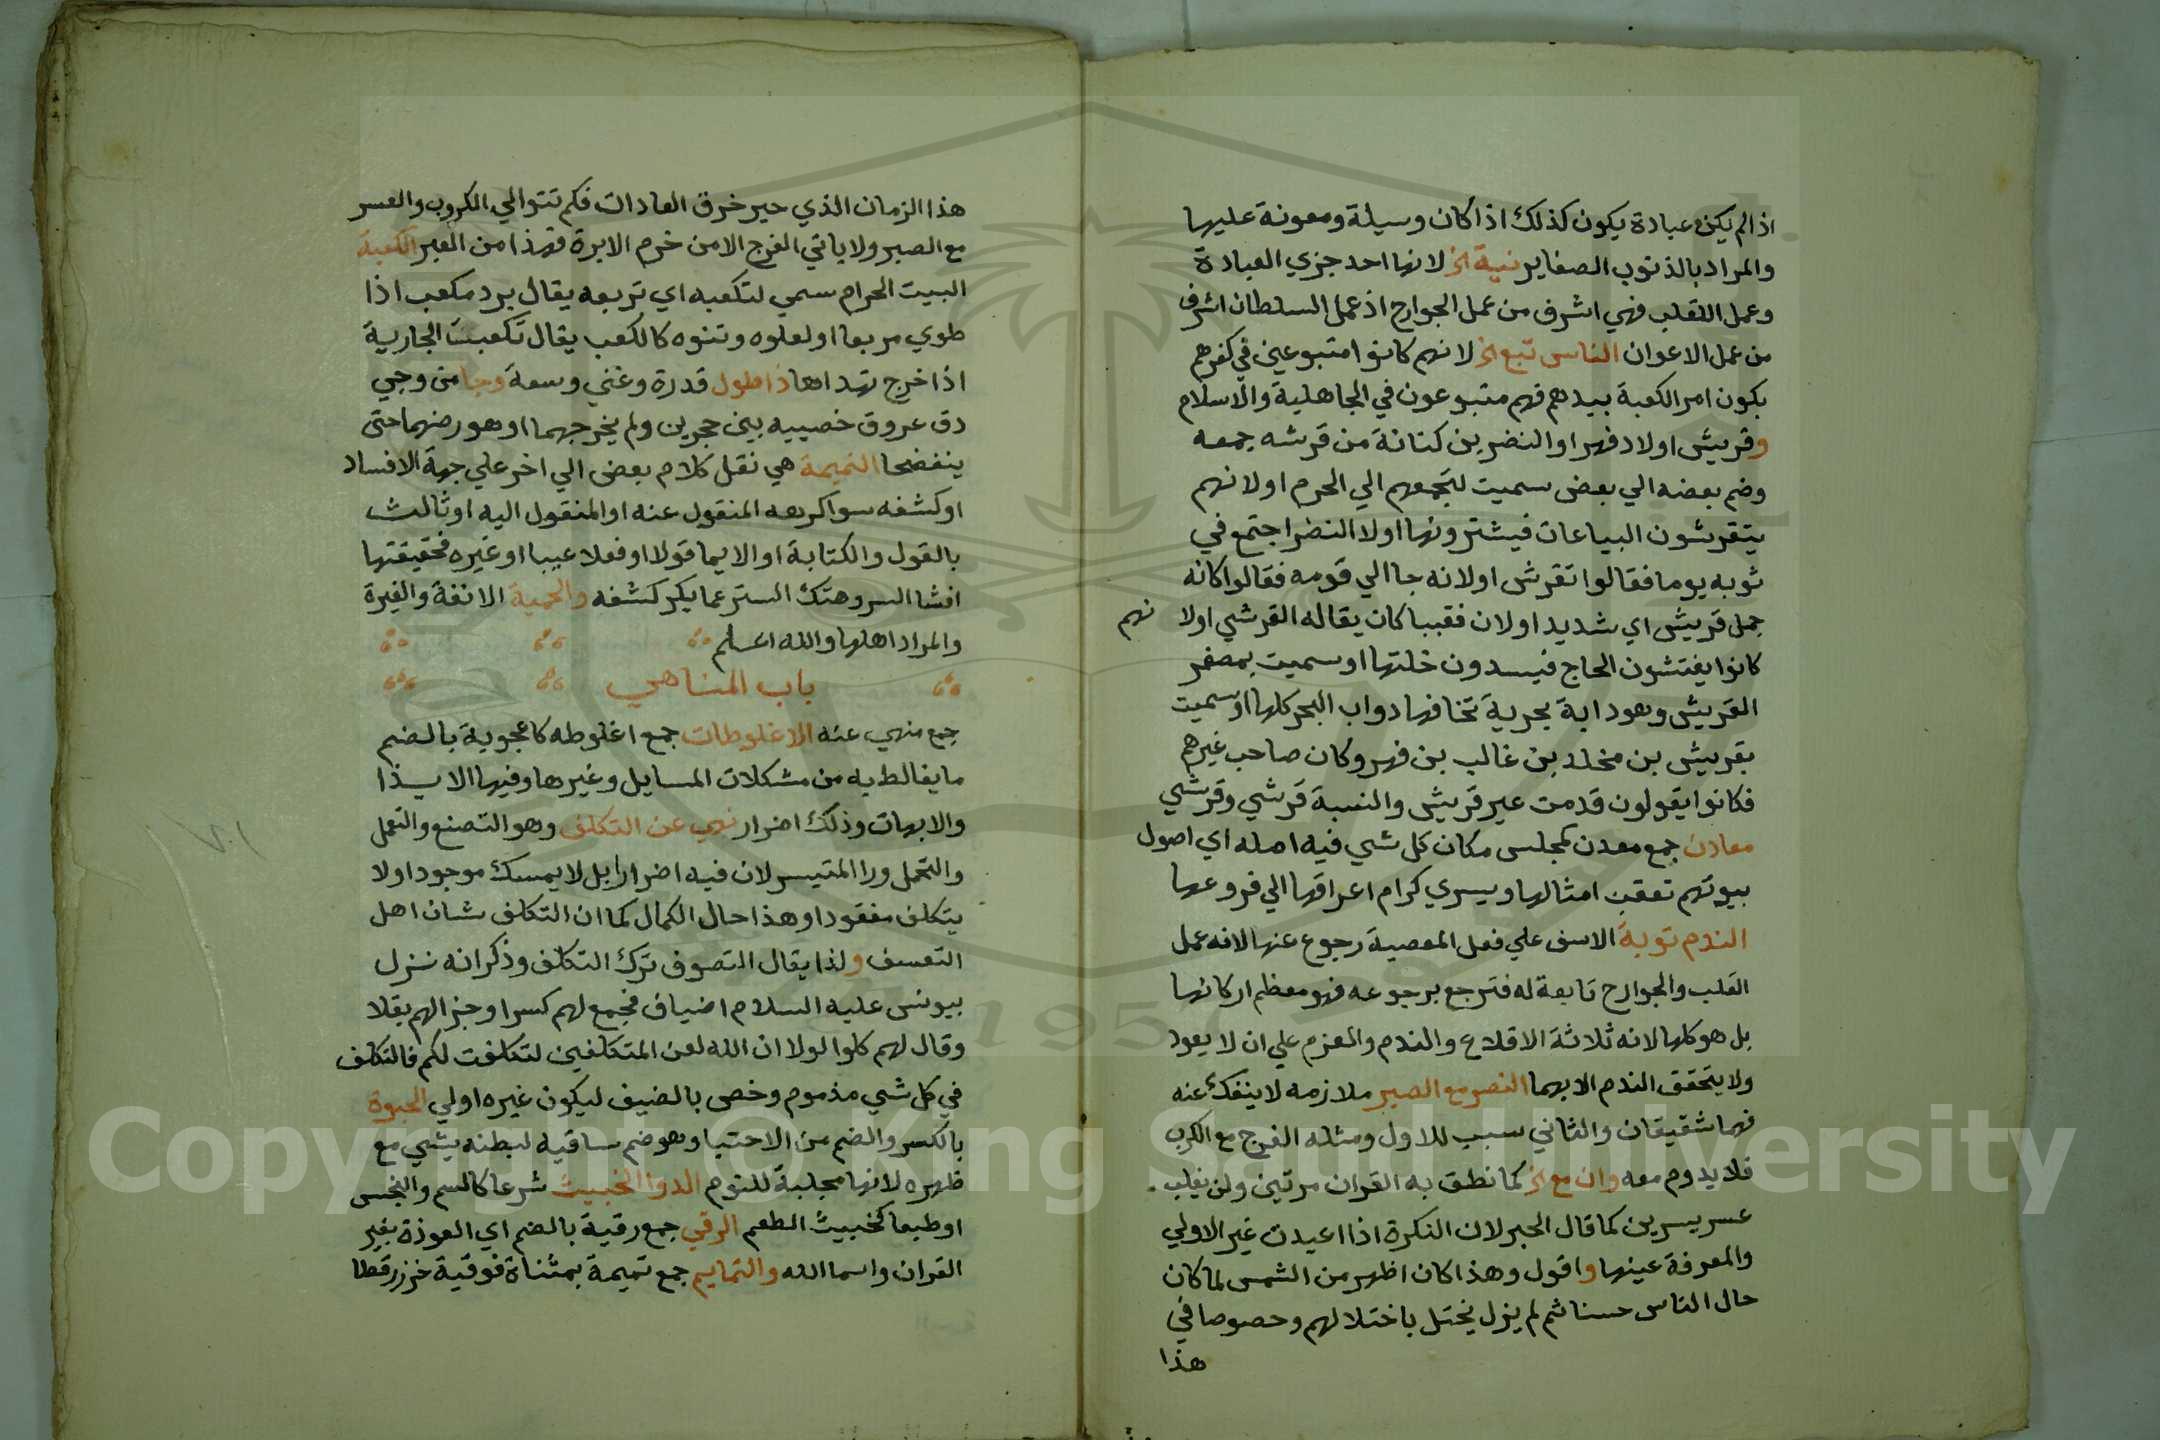 اذا لم يكن عبادة يكون كذلك اذا كان وسيلة ومعونة عليها
والمراد بالذنوب الصغاير نية الخ لانها احد جزي العبادة
وعمل القلب فهي اشرف من عمل الجوارح اذ عمل السلطان اشرف
من عمل الاعوان الناس تبع الخ لانهم كانوا متبوعين في كفرهم
بكون امر الكعبة بيدهم فهم متبوعون في الجاهلية والاسلام
وقريش اولاد فهر او النضر بن كنانة من قرشه جمعه
وضم بعضه الي بعض سميت لتجمعهم الي الحرم او لانهم
يتقرشون البياعات فيشترونها او لان النضر اجتمع في
ثوبه يوما فقالوا تقرش او لانه جا الي قومه فقالوا كانه
جمل قريش اي شديد او لان قصيا كان يقال له القرشي او لا نهم
كانوا يفتشون الحاج فيسدون خلتها او سميت بمصغر
القريش وهو دابة بحرية تخافها دواب البحر كلها او سميت
بقريش بن مخلد بن غالب بن فهر وكان صاحب عيرهم
فكانوا يقولون قدمت عير قريش والنسبة قرشي وقريشي
معادن جمع معدن كمجلس مكان كل شي فيه اصله اي اصول
بيوتهم تعقب امثالها ويسري كرام اعراقها الي فروعها
الندم توبة الاسف علي فعل المعصية رجوع عنها لانه عمل
القلب والجوارح تابعة له فترجع برجوعه فهو معظم اركانها
بل هو كلها لانه ثلاثة الاقلاع والندم والعزم علي ان لا يعود
ولا يتحقق الندم الا بهما النصر مع الصبر ملازمه لا ينفك عنه
فهما شقيقان والثاني سبب للاول ومثله الفرج مع الكرب
فلا يدوم معه وان مع الخ كما نطق به القران مرتين ولن يغلب
عسر يسرين كما قال الحبر لان النكرة اذا اعيدت غير الاولي
والمعرفة عينها واقول وهذا كان اظهر من الشمس لما كان
حال الناس حسنا ثم لم يزل يختل باختلالهم وحصوصا في
هذا
هذا الزمان الذي حير خرق العادات فكم تتوالي الكروب والعسر
مع الصبر ولا ياتي الفرج الا من خرم الابرة فهذا من العبر الكعبة
البيت الحرام سمي لتكعبه اي تربعه يقال برد مكعب اذا
طوي مربعا او لعلوه وتنوه كالكعب يقال تكعبت الجارية
اذا خرج نهداها ذا طول قدرة وغني وسعة وجا من وجي
دق عروق خصييه بين حجرين ولم يخرجهما او هو رضهما حتى
ينفضخا النميمة هي نقل كلام بعض الي اخر علي جهة الافساد
او كشفه سوا كرهه المنقول عنه او المنقول اليه او ثالث
بالقول والكتابة او الايما قولا او فعلا عيبا او غيره فحقيقتها
افشا السر وهتك الستر عما يكره كشفه والحمية الانفة والغيرة
والمراد اهلها والله اعلم
باب المناهي
جمع منهي عنه الاغلوطات جمع اغلوطه كاعجوبة بالضم
ما يغالط به من مشكلات المسايل وغيرها وفيها الايذا
والابهات وذلك اضرار نهي عن التكلف وهو التصنع والتعمل
والتحمل ورا المتيسر لان فيه اضرارا بل لا يمسك موجودا ولا
يتكلف مفقودا وهذا حال الكمال كما ان التكلف شان اهل
التعسف ولذا يقال التصوف ترك التكلف وذكر انه نزل
بيونس عليه السلام اضياف فجمع لهم كسرا وجز لهم بقلا
وقال لهم كلوا لولا ان الله لعن المتكلفين لتكلفت لكم فالتكلف
في كل شي مذموم وخص بالضيف ليكون غيره اولي الحبوة
بالكسر والضم من الاحتبا وهو ضم ساقيه لبطنه بشي مع
ظهره لانها مجلبة للنوم الدوا الخبيث شرعا كالسم والنجس
او طبعا كخبيث الطعم الرقي جمع رقية بالضم اي العوذة بغير
القران واسما الله والتمايم جمع تميمة بمثناة فوقية خرز رقطا
Copyright © King Saud University
1957